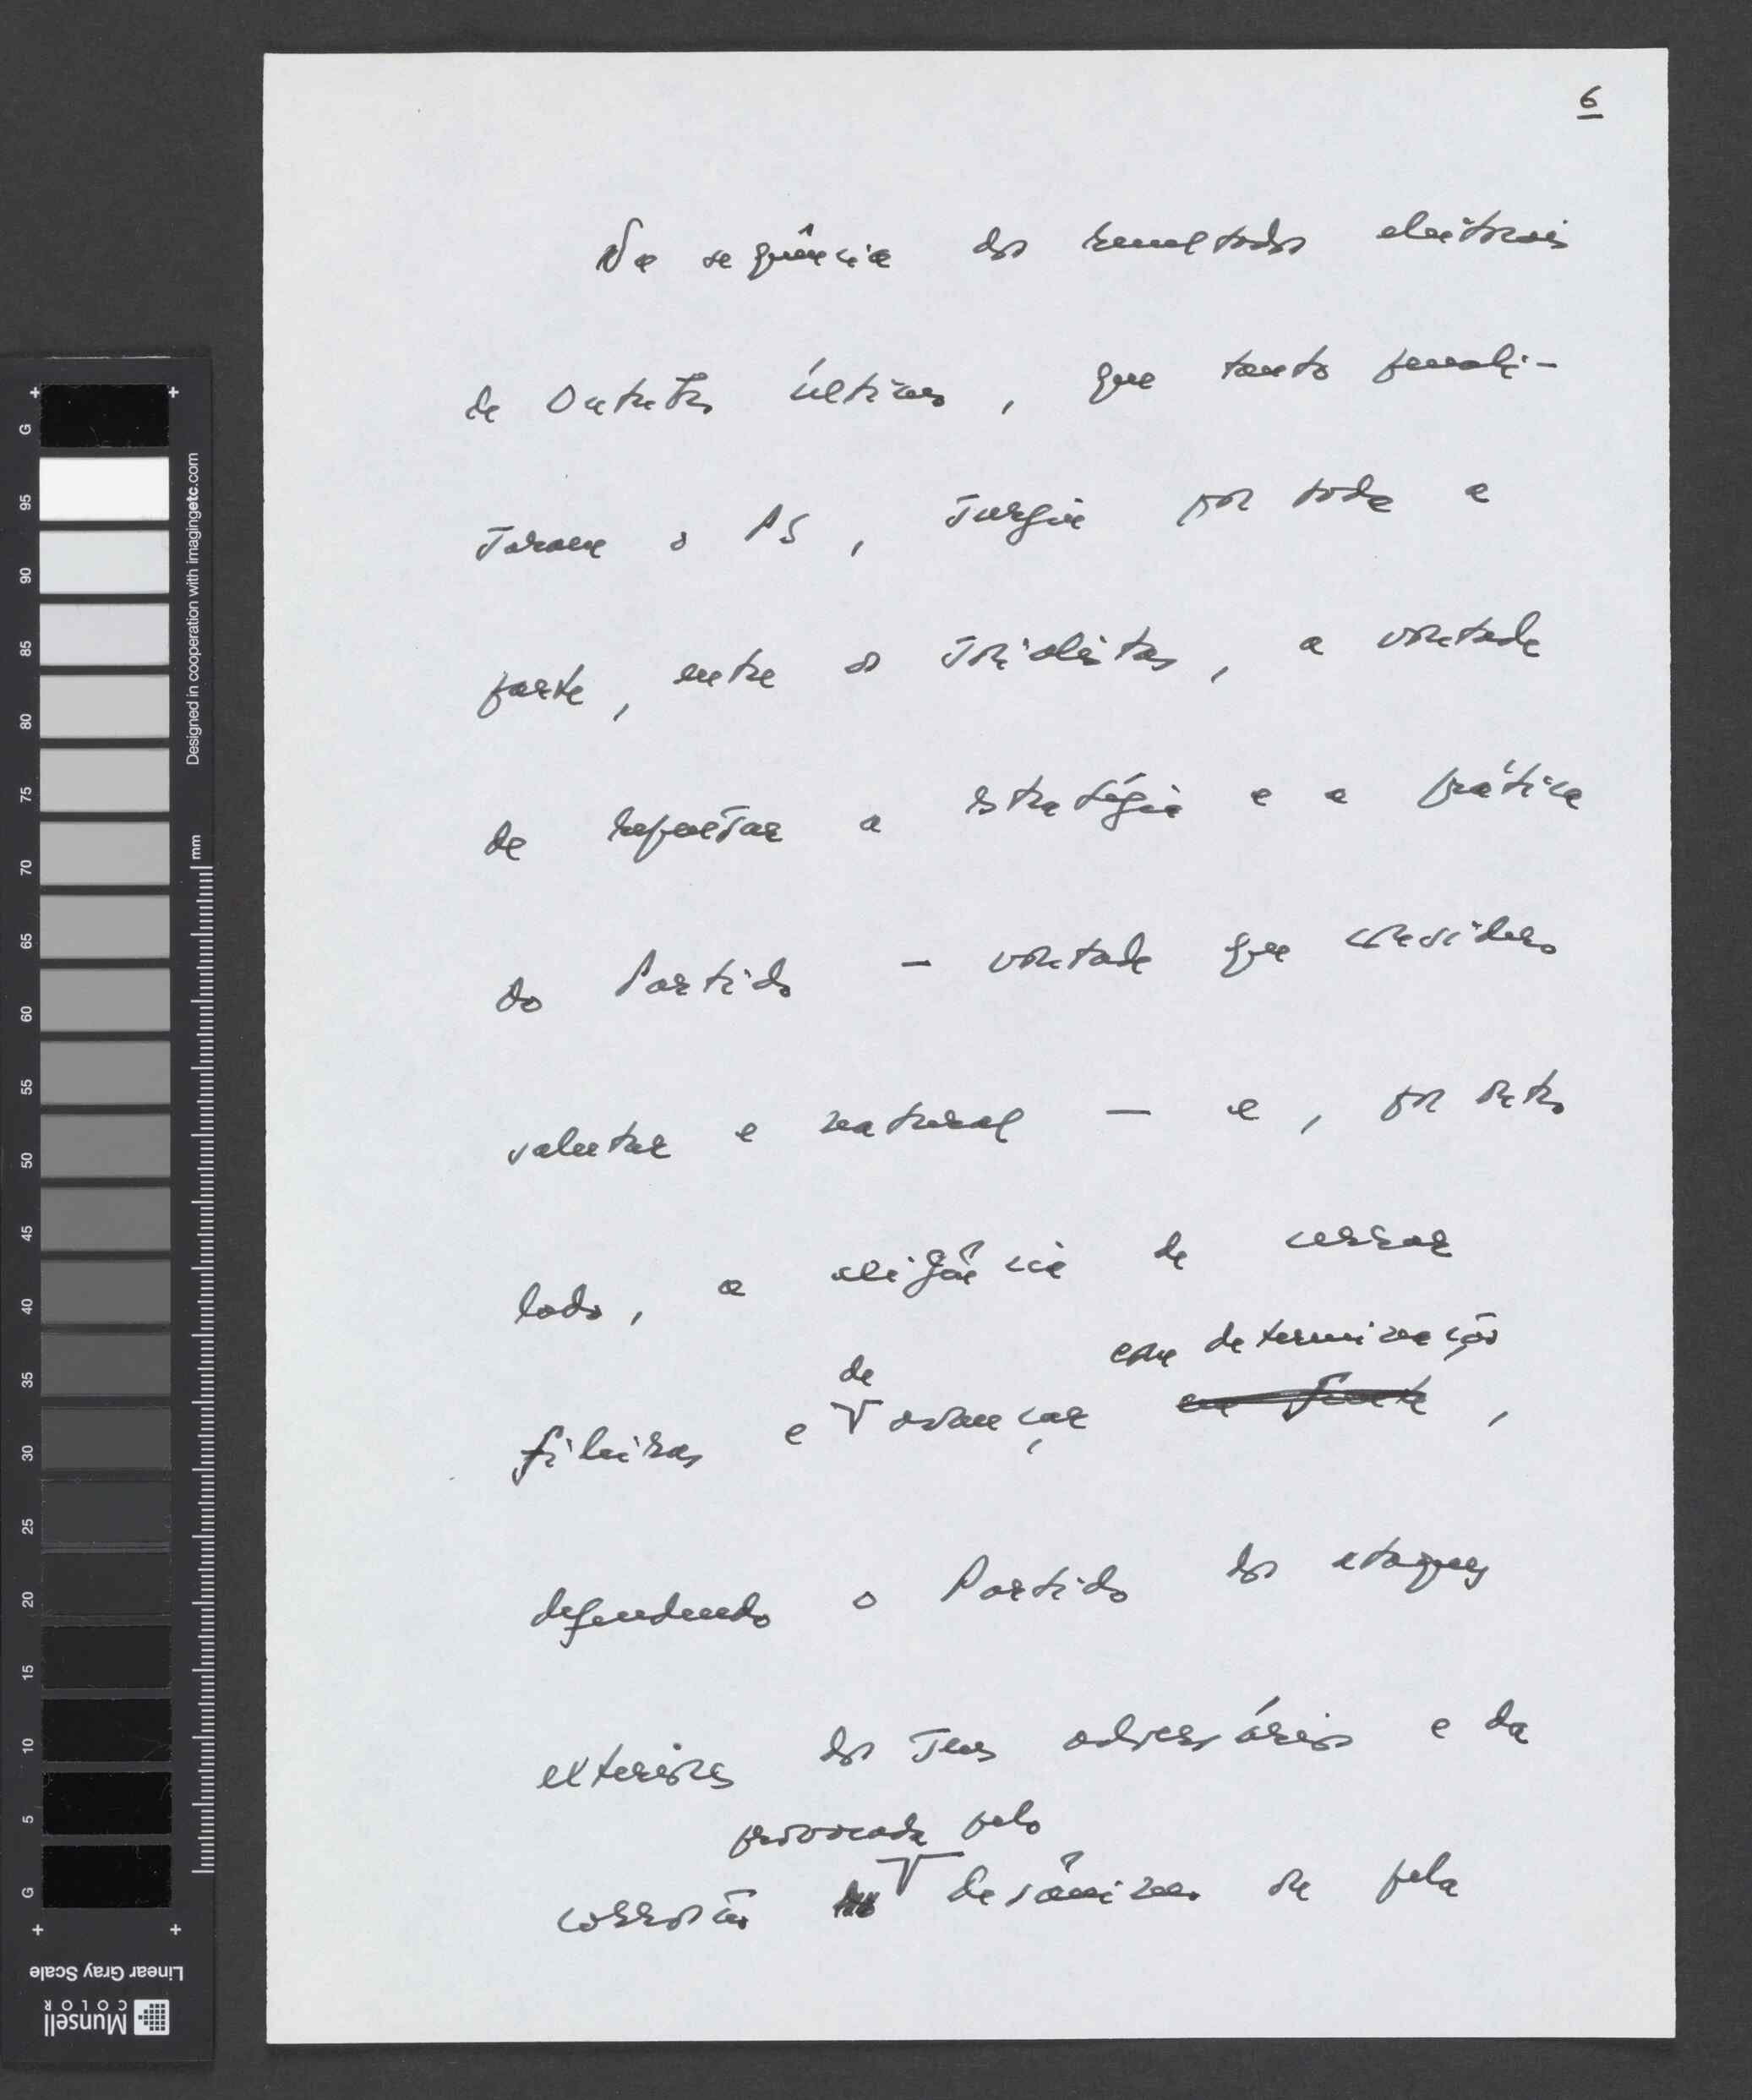 6
Na sequência dos resultados eleitorais
de Outubro último, que tanto penali-
zaram o PS, surgiu por toda a
parte, entre os socialistas, a vontade
de repensar a estratégia e a prática
do Partido — vontade que considero
salutar e natural — e, por outro
lado, a exigência de cerrar
de com determinação
fileiras e avançar em frente,
defendendo o Partido dos ataques
exteriores dos seus adversários e da
provocada pelo
corrosão desânimo ou pela
Designed in cooperation with imagingetc.com
mm
G 95 90 85 80 75 70 65 60 55 50 45 40 35 30 25 20 15 10 5 G
Linear Gray Scale
Munsell
COLOR